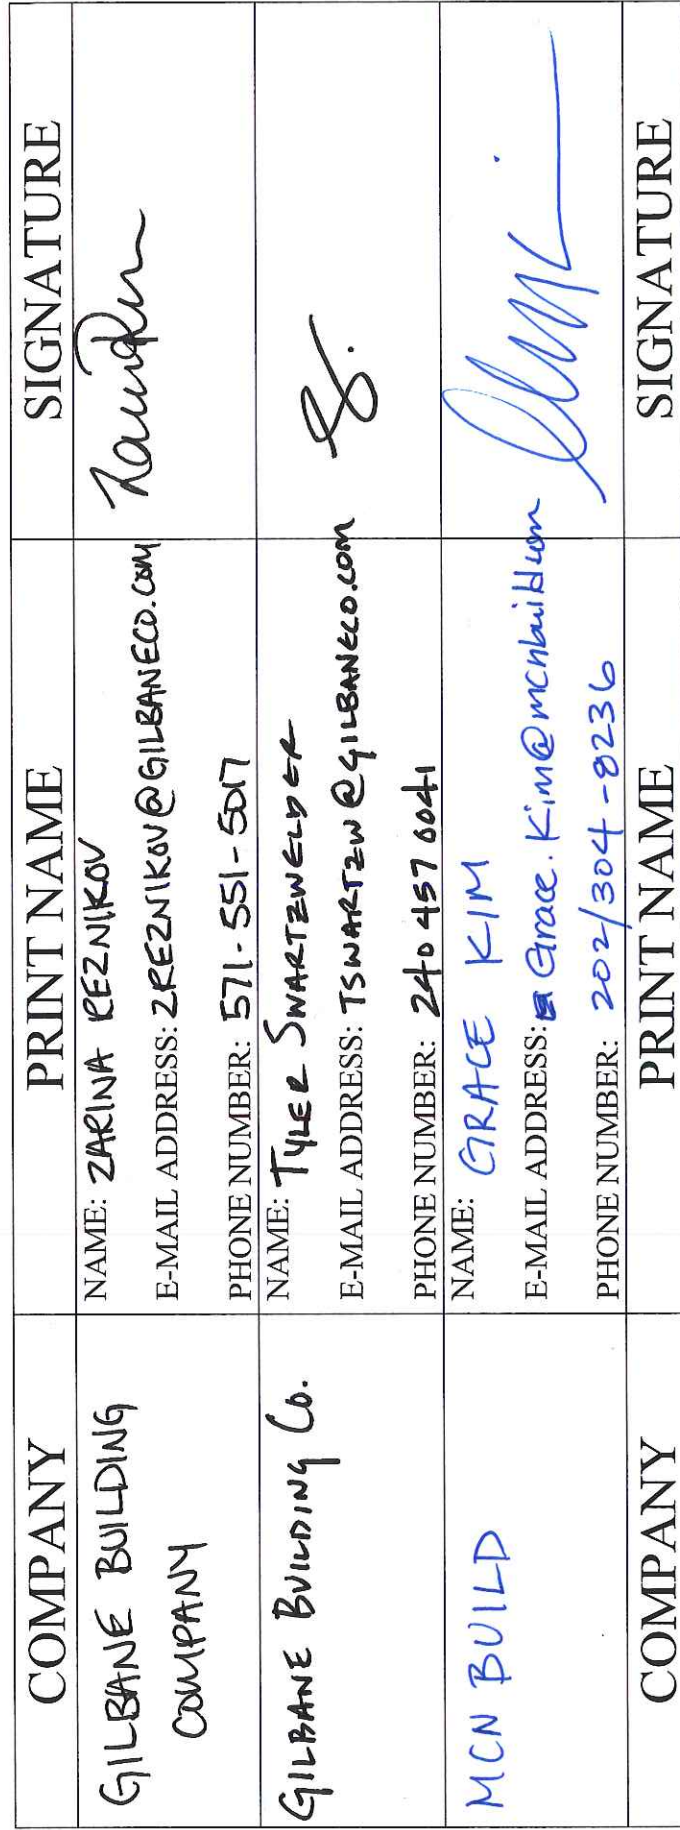 COMPANY PRINT NAME SIGNATURE
GILBANE BUILDING
COMPANY
NAME: ZARINA REZNIKOV
E-MAIL ADDRESS: ZREZNIKOV@GILBANECO.COM
PHONE NUMBER: 571-551-5017
GILBANE BUILDING Co.
NAME: TYLER SWARTZWELDER
E-MAIL ADDRESS: TSWARTZW@GILBANECO.COM
PHONE NUMBER: 240 457 6041
MCN BUILD
NAME: GRACE KIM
E-MAIL ADDRESS: Grace.Kim@mcnbuild.com
PHONE NUMBER: 202/304-8236
COMPANY PRINT NAME SIGNATURE